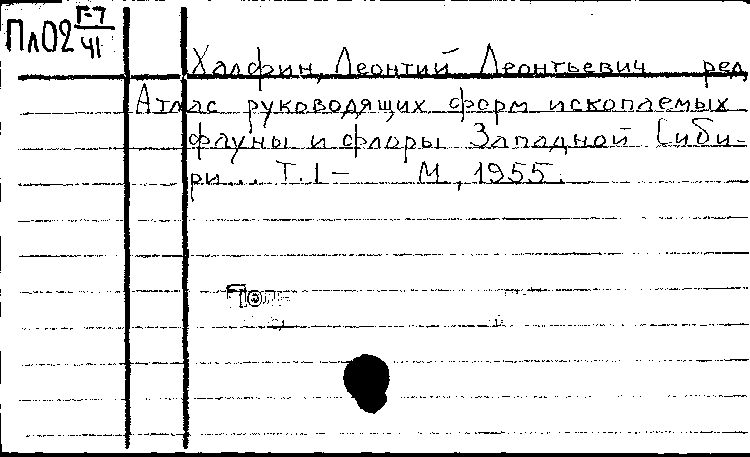 ПлО2 Г-7/41
Халфин, Леонтий Леонтьевич ред.
Атлас руководящих форм ископаемых
фауны и флоры Западной Сиби-
ри... Т.1- М., 1955.